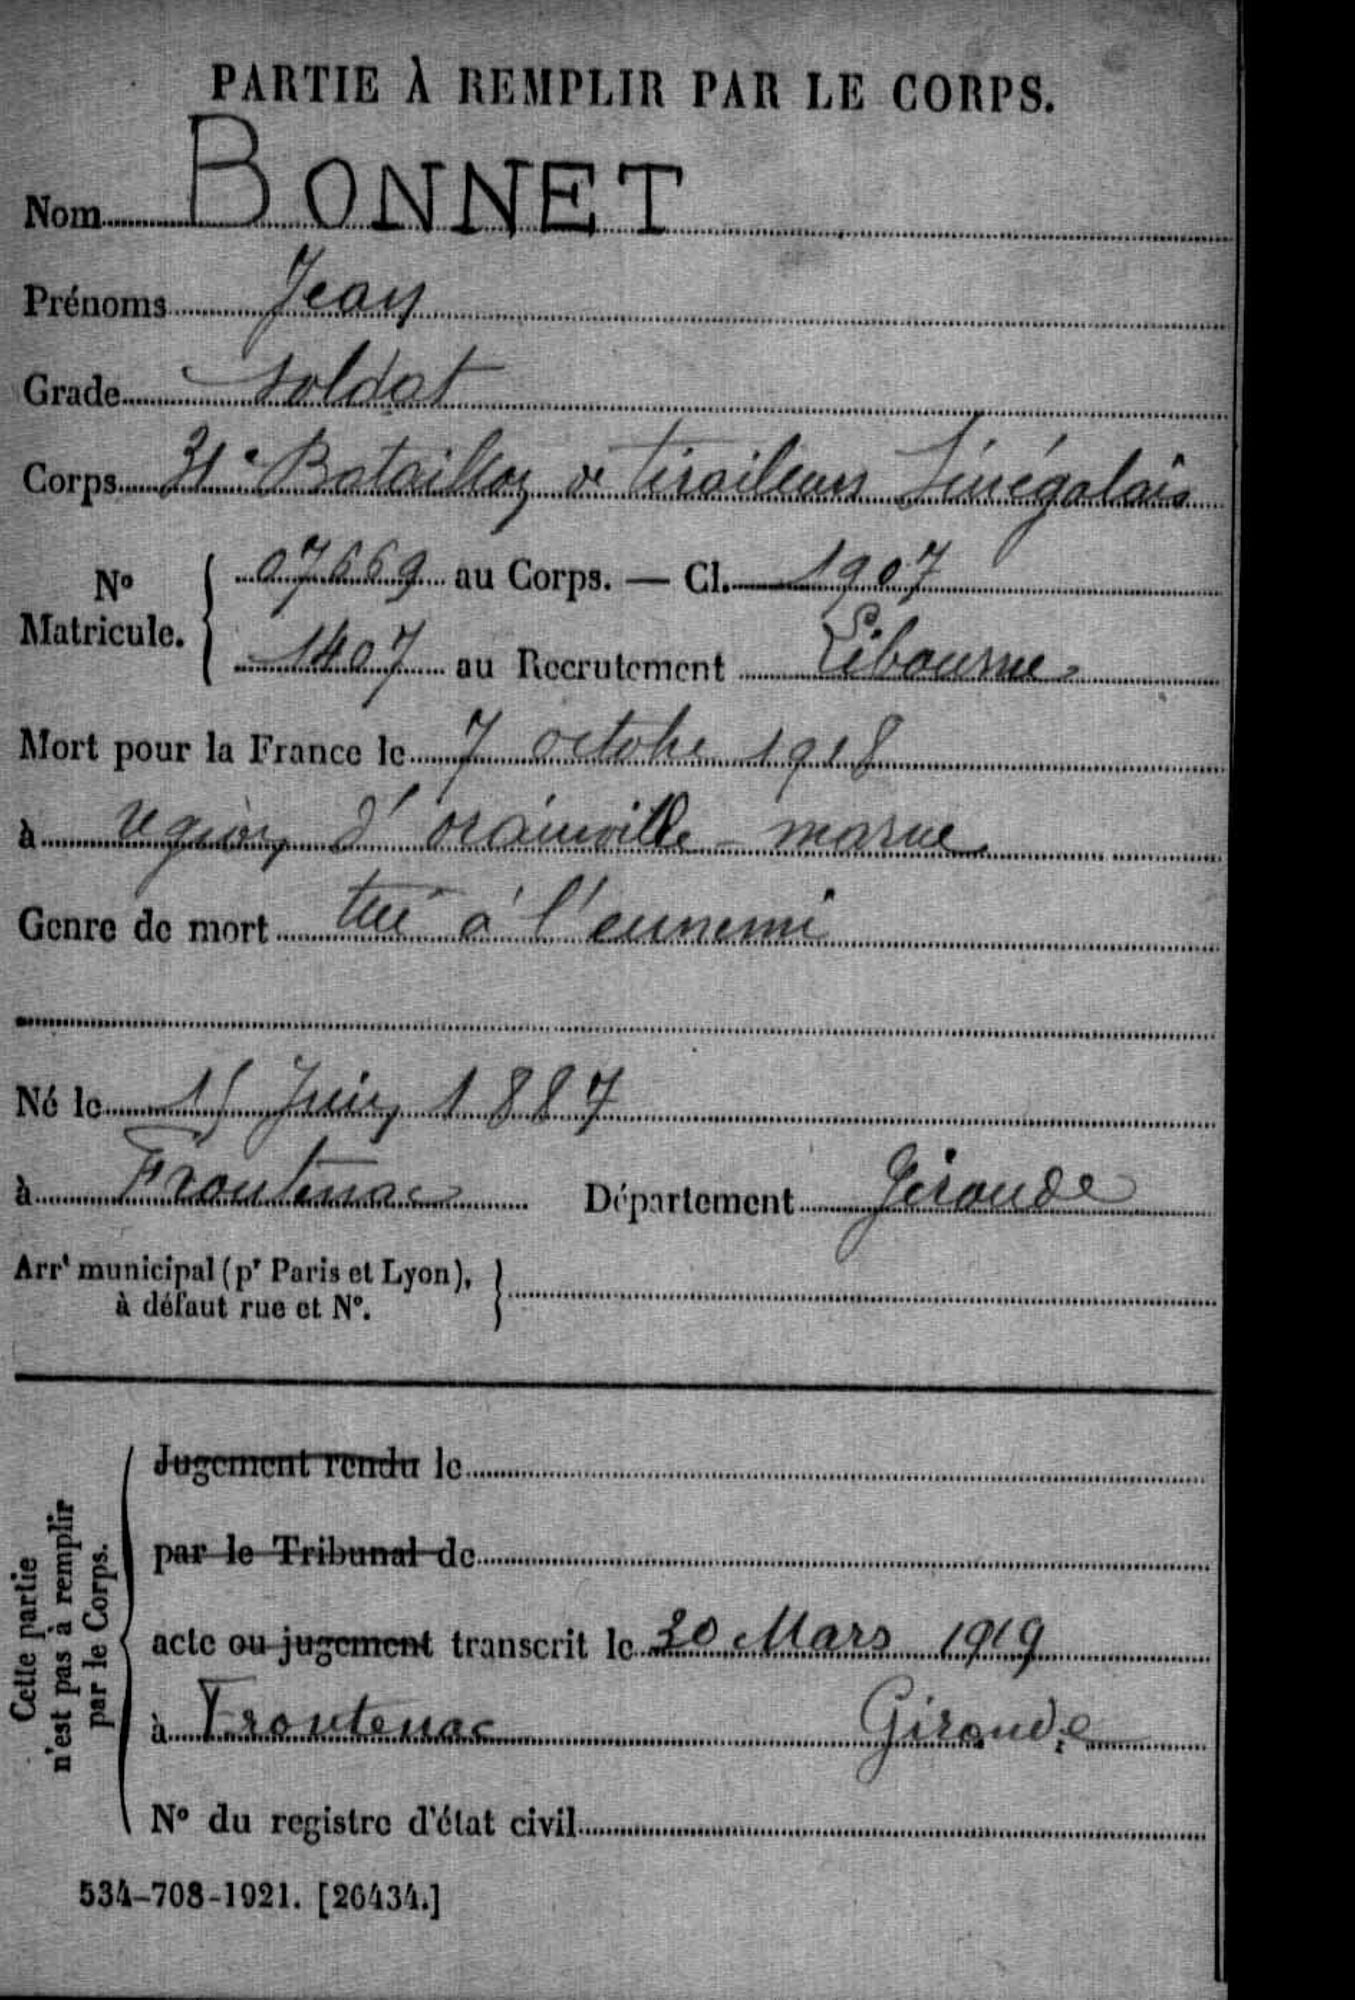 PARTIE À REMPLIR PAR LE CORPS.
Nom BONNET
Prénoms Jean
Grade soldat
Corps 31e Bataillon de tirailleurs Sénégalais
No Matricule. 07669 au Corps. — Cl. 1907
1407 au Recrutement Libourne
Mort pour la France le 7 octobre 1918
à région d'orainville - marne
Genre de mort tué à l'ennemi
Né le 15 Juin 1887
à Frontenac Département Gironde
Arrt municipal (pr Paris et Lyon),
à défaut rue et No.
Cette partie
n'est pas à remplir
par le Corps.
Jugement rendu le
par le Tribunal de
acte ou jugement transcrit le 20 Mars 1919
à Frontenac Gironde
No du registre d'état civil
534-708-1921. [26434.]